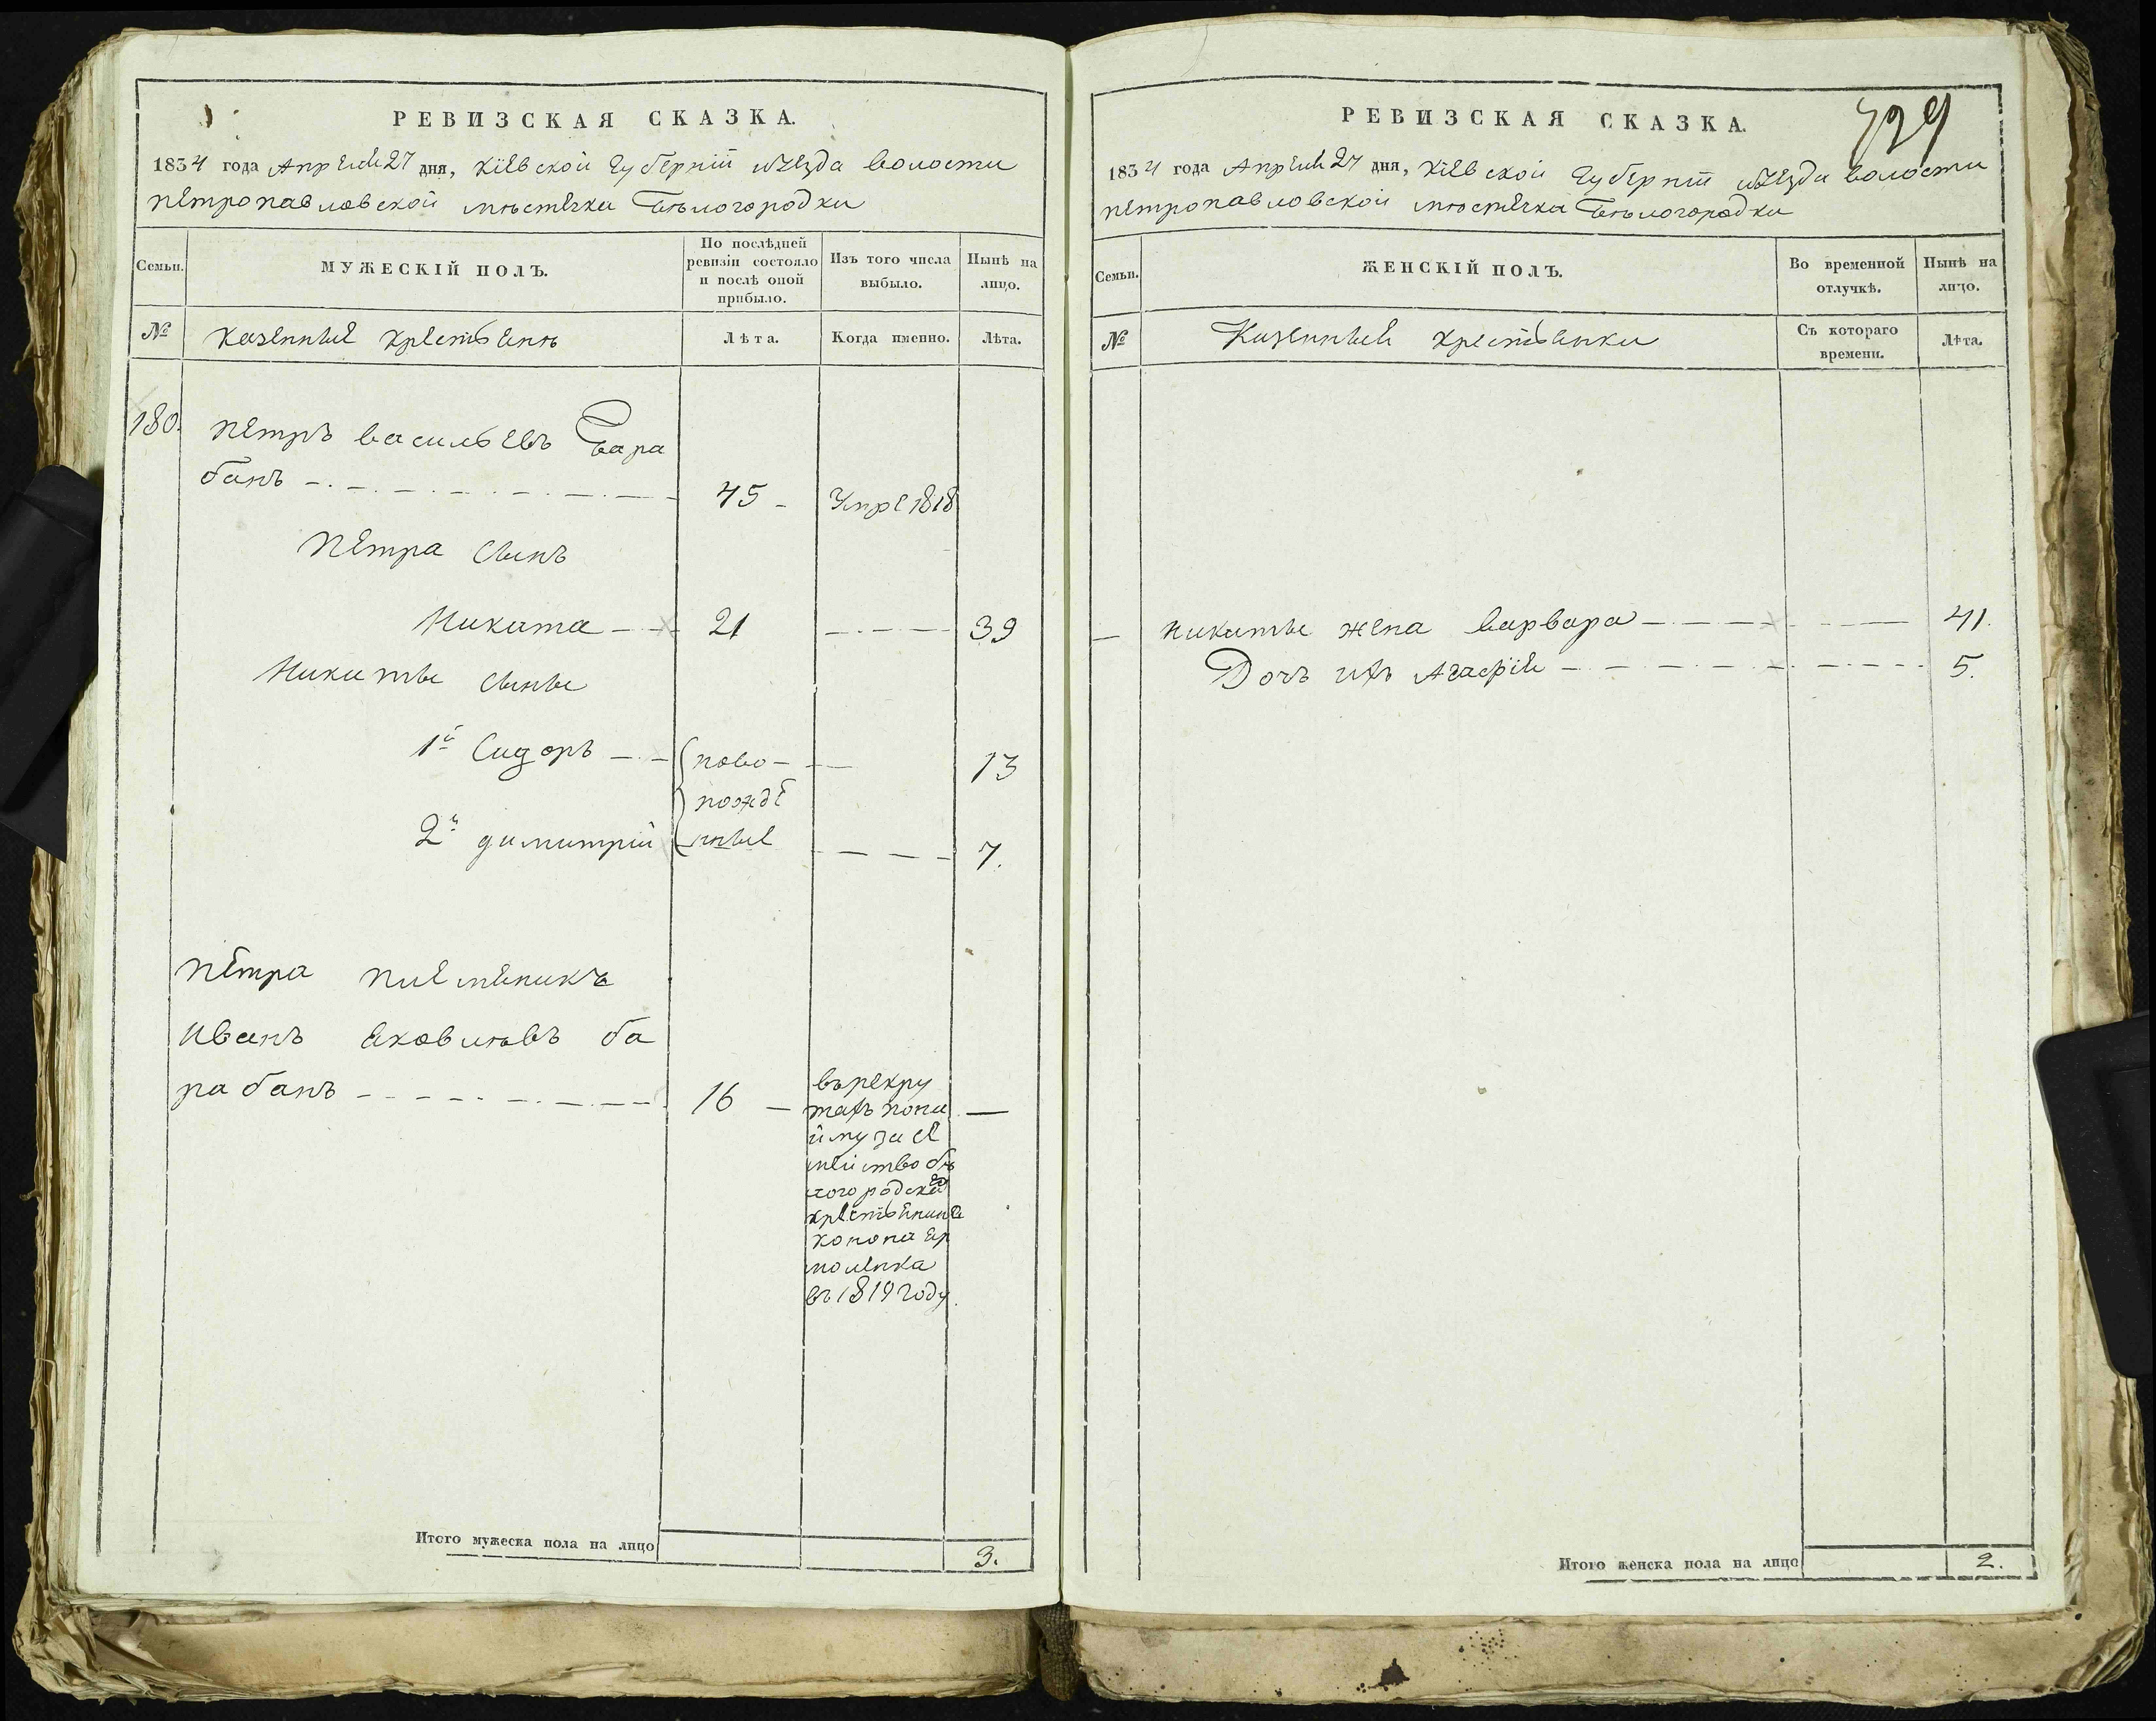 РЕВИЗСКАЯ СКАЗКА.
1834 года Апреля 27 дня, Кіевской губерніи уезда волости
петропавловской местечка Белогородки
Семьи.
МУЖЕСКІЙ ПОЛЪ.
По послѣдней ревизіи состояло и послѣ оной прибыло.
Изъ того числа выбыло.
Нынѣ на лицо.
№
казенные крестьяне
Лѣта.
Когда именно.
Лѣта.
180.
петръ васильевъ Бара
банъ
45
Умре 1818
Петра сынъ
Никита
21
39
Никиты сыны
1й Сидоръ
ново-
13
рожде
2й димитрій
нные
7.
петра племяникъ
иванъ яковлевъ ба
рабанъ
16
въ рекру
тахъ по на
йму за се
мейство бе
логородска
го
крестьянина
конона яр
моленка
въ 1819 году.
Итого мужеска пола на лицо
3.
729
РЕВИЗСКАЯ СКАЗКА.
1834 года Апреля 27 дня, Кіевской губерніи уезда волости
петропавловской местечка Белогородки
Семьи.
ЖЕНСКІЙ ПОЛЪ.
Во временной отлучкѣ.
Нынѣ на лицо.
№
Казенные крестьянки
Съ котораго времени.
Лѣта.
никиты жена варвара
41.
Дочь ихъ Агафія
5.
Итого женска пола на лицо
2.